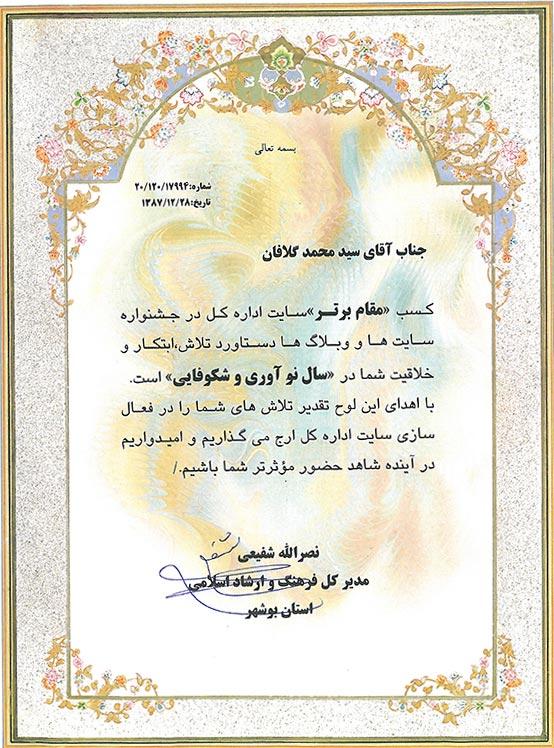 بسمه تعالی
شماره:۲۰/۱۲۰/۱۷۹۹۴
تاریخ:۱۳۸۷/۱۲/۲۸
جناب آقای سید محمد گلافان
کسب «مقام برتر»سایت اداره کل در جشنواره
سایت ها و وبلاگ ها دستاورد تلاش،ابتکار و
خلاقیت شما در «سال نو آوری و شکوفایی» است.
با اهدای این لوح تقدیر تلاش های شما را در فعال
سازی سایت اداره کل ارج می گذاریم و امیدواریم
در آینده شاهد حضور مؤثرتر شما باشیم./
نصرالله شفیعی
مدیر کل فرهنگ و ارشاد اسلامی
استان بوشهر